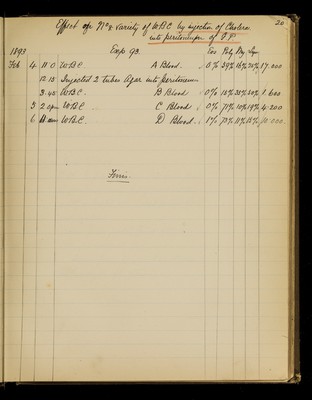 20
Effect on No & variety of W.B.C. by injection of Cholera
into peritoneum of G.P.
1893 Exp 93. Eos Poly My Lym
Feb 4 11 0 W.B.C. A Blood. 0% 39%
12 15 Injected 2 tubes Agar into peritoneum
3 45 W.B.C. B Blood 0%
5 2 pm W.B.C. C Blood 0% 71% 10% 19% 4.200
6 11 am W.B.C. D Blood. 1% 10.000
Finis.